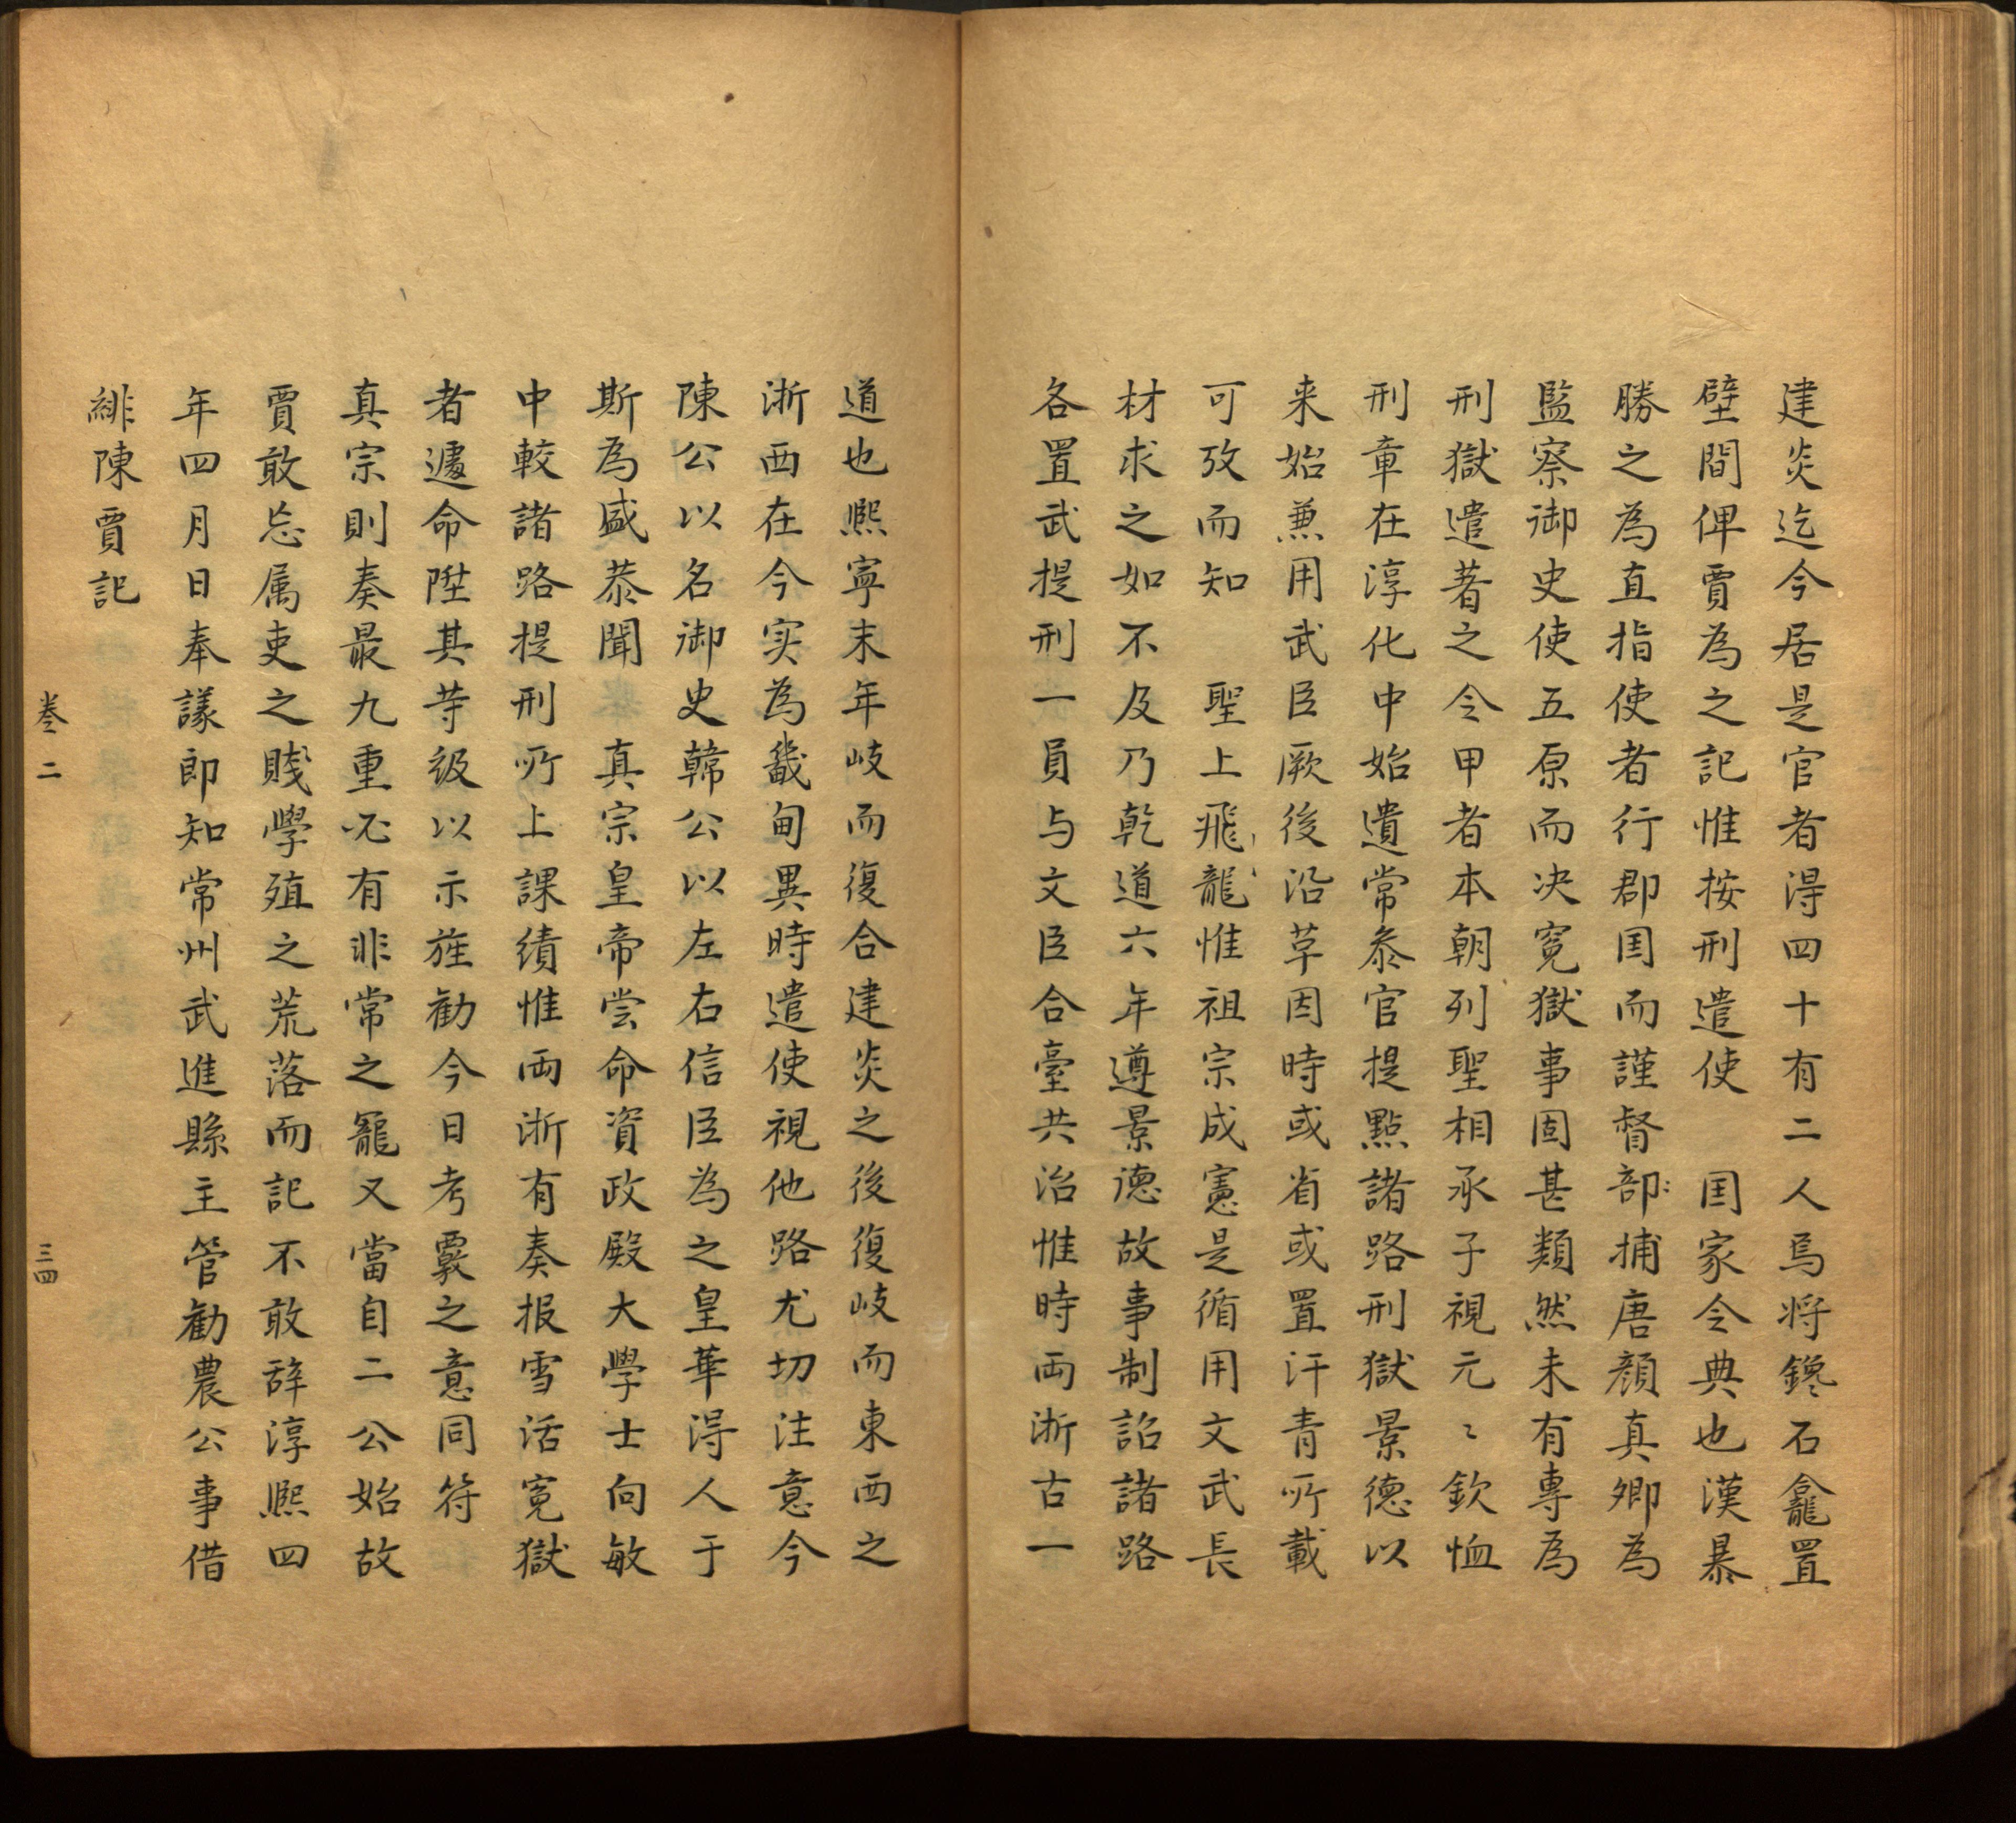 建炎迄今居是官者淂四十有二人焉将鑱石龕置
壁間俾賈為之記惟按刑遣使　国家令典也漢暴
勝之為直指使者行郡国而謹督部捕唐顔真卿為
監察御史使五原而决寃獄事固甚類然未有專為
刑獄遣著之令甲者本朝列聖相承子視元〻欽恤
刑章在淳化中始遺常叅官提點諸路刑獄景德以
来始兼用武臣厥後沿草因時或省或置汗青所載
可攷而知　聖上飛龍惟祖宗成憲是循用文武長
材求之如不及乃乾道六年遵景德故事制詔諸路
各置武提刑一員与文臣合臺共治惟時両浙古一
道也熈寧末年岐而復合建炎之後復岐而東西之
浙西在今实為畿甸異時遣使視他路尤切注意今
陳公以名御史韓公以左右信臣為之皇華淂人于
斯為盛恭聞　真宗皇帝尝命資政殿大學士向敏
中較諸路提刑所上課績惟両浙有奏报雪活寃獄
者遽命陞其䓁級以示旌勧今日考覈之意同符
真宗則奏最九重必有非常之寵又當自二公始故
賈敢忘属吏之賤學殖之荒落而記不敢辞淳熈四
年四月日奉議郎知常州武進縣主管勧農公事借
緋陳賈記
卷二
三四